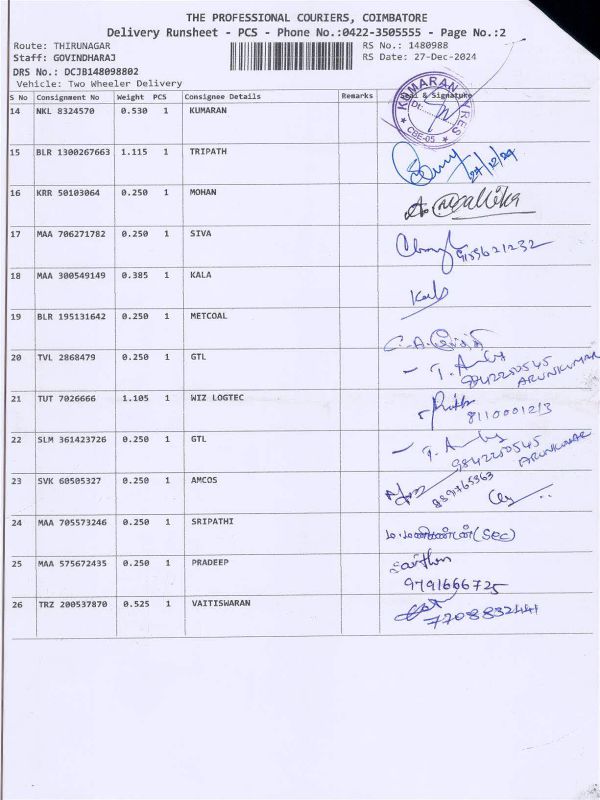 THE PROFESSIONAL COURIERS, COIMBATORE
Delivery Runsheet - PCS - Phone No.:0422-3505555 - Page No.:2
Route: THIRUNAGAR RS No.: 1480988
Staff: GOVINDHARAJ RS Date: 27-Dec-2024
DRS No.: DCJB148098802
Vehicle: Two Wheeler Delivery
S No Consignment No Weight PCS Consignee Details Remarks Seal & Signature
14 NKL 8324570 0.530 1 KUMARAN KUMARAN TYRES CBE-05
15 BLR 1300267663 1.115 1 TRIPATH 27/12/24
16 KRR 50103064 0.250 1 MOHAN
17 MAA 706271782 0.250 1 SIVA
18 MAA 300549149 0.385 1 KALA
19 BLR 195131642 0.250 1 METCOAL
20 TVL 2868479 0.250 1 GTL 9842250545
ARUNKUMAR
21 TUT 7026666 1.105 1 WIZ LOGTEC
22 SLM 361423726 0.250 1 GTL 9842250545
ARUNKUMAR
23 SVK 60505327 0.250 1 AMCOS
24 MAA 705573246 0.250 1 SRIPATHI (Sec)
25 MAA 575672435 0.250 1 PRADEEP
9791666725
26 TRZ 200537870 0.525 1 VAITISWARAN
7708832441